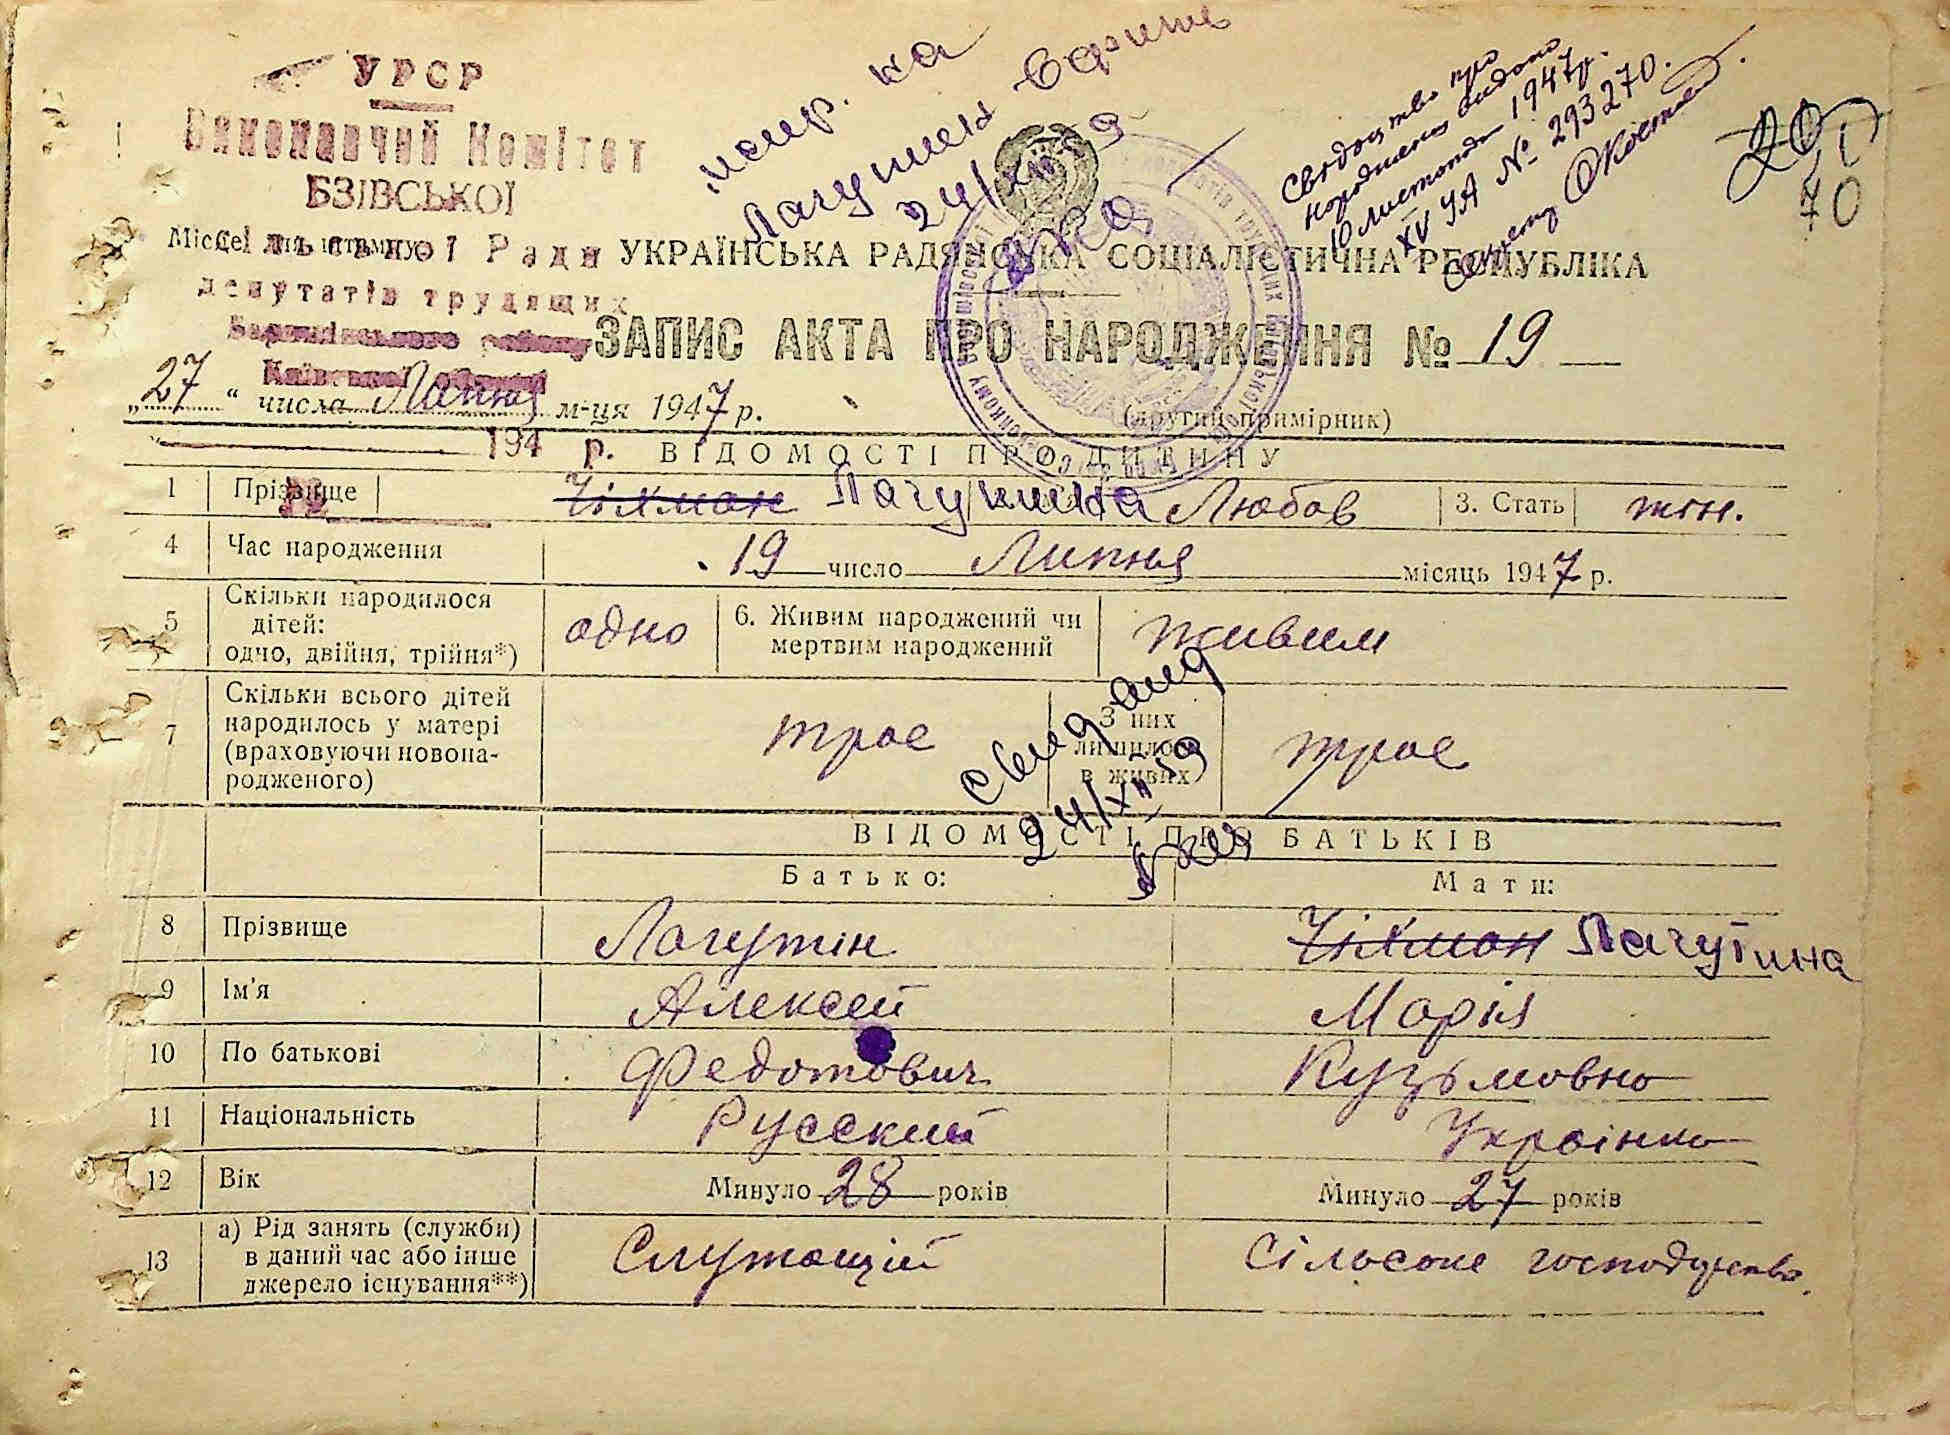 УРСР
Виконавчий Комітет
БЗІВСЬКОЇ
Сільської Ради
депутатів трудящих
Баришівського району
Київської області
194 р.
испр. на
Лагутина
24/XII 59
Свідоцтво про
народження видано
10 листопада 1947р.
XV УА № 293270.
20
70
Місце для штампу
УКРАЇНСЬКА РАДЯНСЬКА СОЦІАЛІСТИЧНА РЕСПУБЛІКА
ЗАПИС АКТА ПРО НАРОДЖЕННЯ № 19
„27“ числа Липня м-ця 1947 р.
(другий примірник)
ВІДОМОСТІ ПРО ДИТИНУ
1 Прізвище Чіхман Лагутина Любов 3. Стать жін.
4 Час народження 19 число Липня місяць 1947 р.
5 Скільки народилося дітей: одно, двійня, трійня*) одно 6. Живим народжений чи мертвим народжений живим
7 Скільки всього дітей народилось у матері (враховуючи новонародженого) троє З них лишилось в живих троє
24/XII 59
ВІДОМОСТІ ПРО БАТЬКІВ
Батько: Мати:
8 Прізвище Лагутін Чіхман Лагутина
9 Ім'я Алексей Марія
10 По батькові Федотович Кузьмовна
11 Національність Русский Українка
12 Вік Минуло 28 років Минуло 27 років
13 а) Рід занять (служби) в даний час або інше джерело існування**) Служащій Сільське господарство